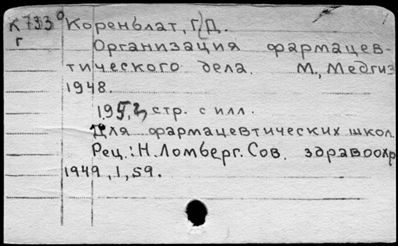 К733 Коренблат, Г.Д.
г
Организация фармацев-
тического дела. М, Медгиз
1948.
195,3, стр. с илл.
Для фармацевтических школ
Рец.: Н. Ломберг. Сов. здравоохр
1949, 1, 59.